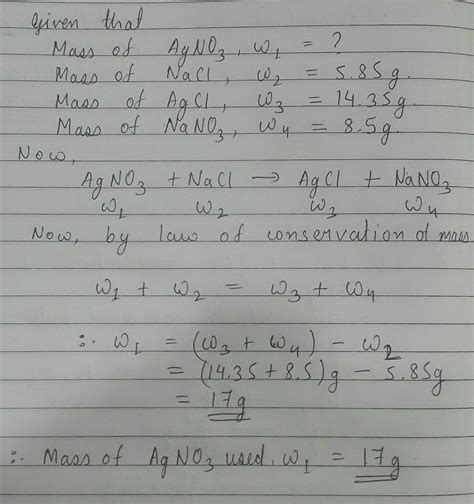 Given that
Mass of AgNO₃, ω₁ = ?
Mass of NaCl, ω₂ = 5.85g.
Mass of AgCl, ω₃ = 14.35g.
Mass of NaNO₃, ω₄ = 8.5g.
Now,
AgNO₃ + NaCl → AgCl + NaNO₃
ω₁ ω₂ ω₃ ω₄
Now, by law of conservation of mass
ω₁ + ω₂ = ω₃ + ω₄
∴ ω₁ = (ω₃ + ω₄) - ω₂
= (14.35 + 8.5)g - 5.85g
= 17g
∴ Mass of AgNO₃ used, ω₁ = 17g